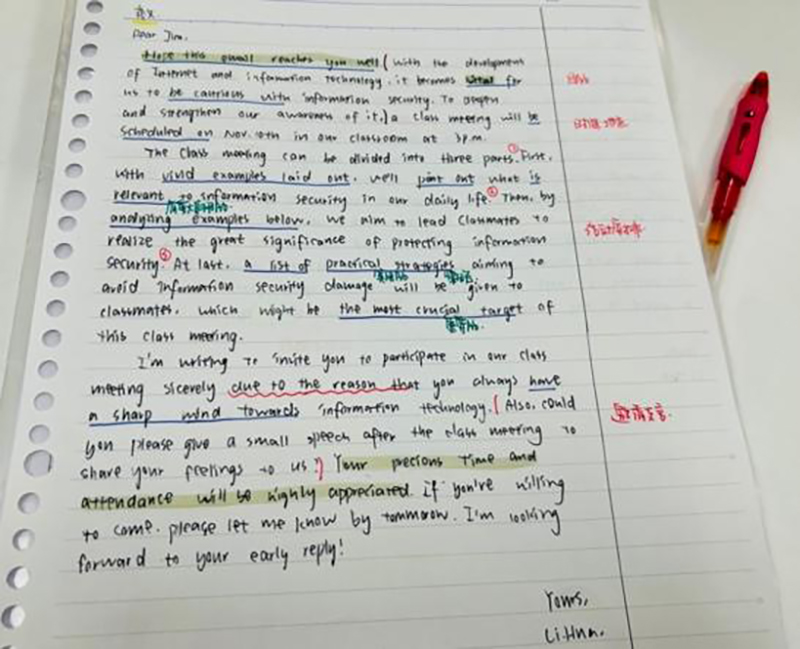 Dear Jim,
Hope this email reaches you well (with the development
of Internet and information technology, it becomes vital for
us to be cautious with information security. To depth
and strengthen our awareness of it,) a class meeting will be
scheduled on Nov. 10th in our classroom at 3p.m.
The class meeting can be divided into three parts. ①First,
with vivid examples laid out, we'll point out what is
relevant to information security in our daily life. ②Then, by
analyzing examples below, we aim to lead classmates to
realize the great significance of protecting information
security. ③At last, a list of practical strategies aiming to
avoid information security damage will be given to
classmates, which might be the most crucial target of
重要的
this class meeting.
I'm writing to invite you to participate in our class
meeting sicerely due to the reason that you always have
a sharp mind towards information technology. (Also, could
邀请发言
you please give a small speech after the class meeting to
share your feelings to us?) Your precious time and
attendance will be highly appreciated. If you're willing
to come, please let me know by tommorow. I'm looking
forward to your early reply!
Yours,
Li Hua.